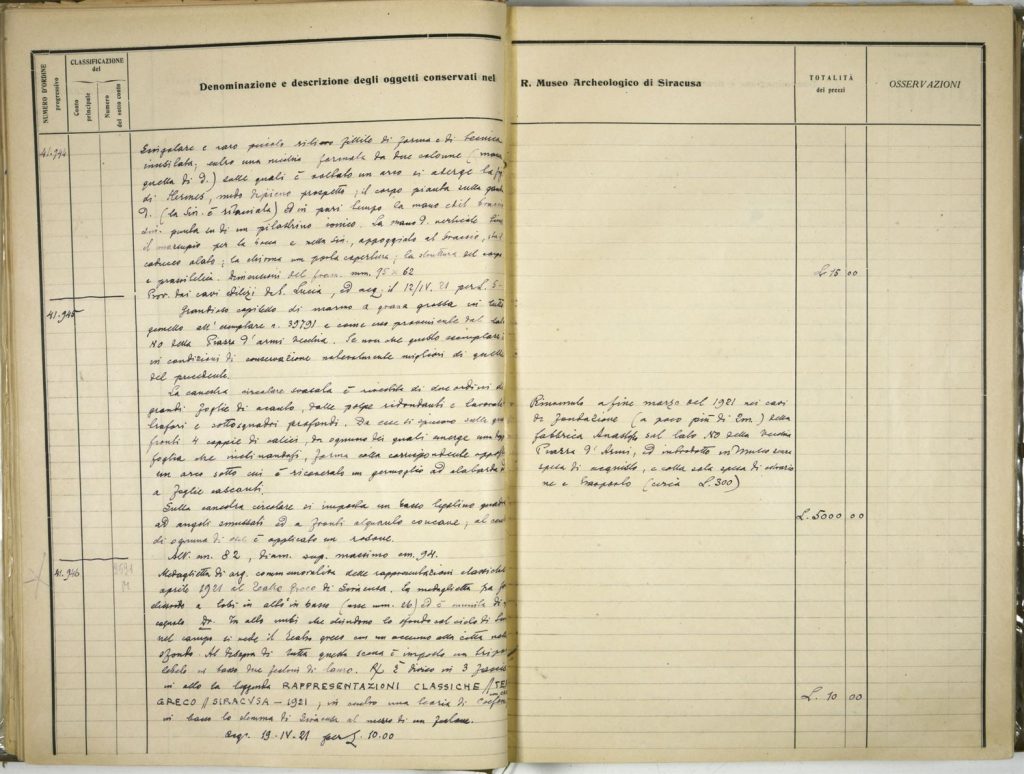 NUMERO D'ORDINE progressivo
CLASSIFICAZIONE del
Conto principale
Numero del sotto conto
Denominazione e descrizione degli oggetti conservati nel R. Museo Archeologico di Siracusa
TOTALITÀ dei prezzi
OSSERVAZIONI
41.944
Singolare e raro piccolo rilievo fittile di forma e di tecnica
inusitata; entro una nicchia formata da due colonne (manca
quella di d.) sulle quali è voltato un arco si aderge la
di Hermes, nudo di pieno prospetto; il corpo pianta sulla gamba
d. (la sin. è rilasciata) ed in pari tempo la mano
sin. punta su di un pilastrino ionico. La mano d. verticale tiene
il marsupio per la bocca e nella sin., appoggiato al braccio,
caduceo alato; la chioma non porta copertura; la struttura del corpo
è prassitelica. Dimensioni del fram. mm. 75 x 62
Prov. dai cavi edilizi di S. Lucia, ed acq. il 12/IV. 21 per L. 5-
L. 15 00
41.945
Grandioso capitello di marmo a grana grossa in tutto
gemello all'esemplare n. 39791 e come esso proveniente dal lato
NO della Piazza d'armi vecchia. Se non che questo esemplare è
in condizioni di conservazione notevolmente migliori di quelle
del precedente.
La canestra circolare svasata è rivestita di due ordini di
grandi foglie di acanto, dalle polpe ridondanti e lavorate
trafori e sottosquadri profondi. Da esse si spiccano sulle quattro
fronti 4 coppie di calici, da ognuno dei quali emerge una
foglia che inclinandosi, forma colla corrispondente opposta
un arco sotto cui è ricoverato un germoglio ad alabarda
a foglie cascanti.
Sulla canestra circolare si imposta un basso
ad angoli smussati ed a fronti alquanto concave; al centro
di ognuna di esse è applicato un rosone.
Alt. cm. 82, diam. sup. massimo cm. 94.
Rinvenuto a fine marzo del 1921 nei cavi
di fondazione (a poco più di 2m.) della
fabbrica sul lato NO della vecchia
Piazza d'Armi, ed introdotto in Museo senza
spesa di acquisto, e colla sola spesa di estrazio
ne e trasporto (circa L. 300)
L. 5000 00
41.946
Medaglietta di arg. commemorativa delle rappresentazioni classiche
aprile 1921 al Teatro Greco di Siracusa. La medaglietta ha
a lobi in alto e in basso (asse mm. 26) ed è munita di
cagnolo Dr. In alto nubi che
nel campo si vede il teatro greco con un accenno alla città nello
sfondo. Al disegno di tutta questa scena è imposto un
in basso due festoni di lauro. Rx È diviso in 3 fasce
in alto la leggenda RAPPRESENTAZIONI CLASSICHE //
GRECO // SIRACVSA – 1921, in centro una teoria di Coefore
in basso lo stemma di Siracusa al mezzo di un festone.
Acq. 19-IV-21 per L. 10.00
L. 10 00